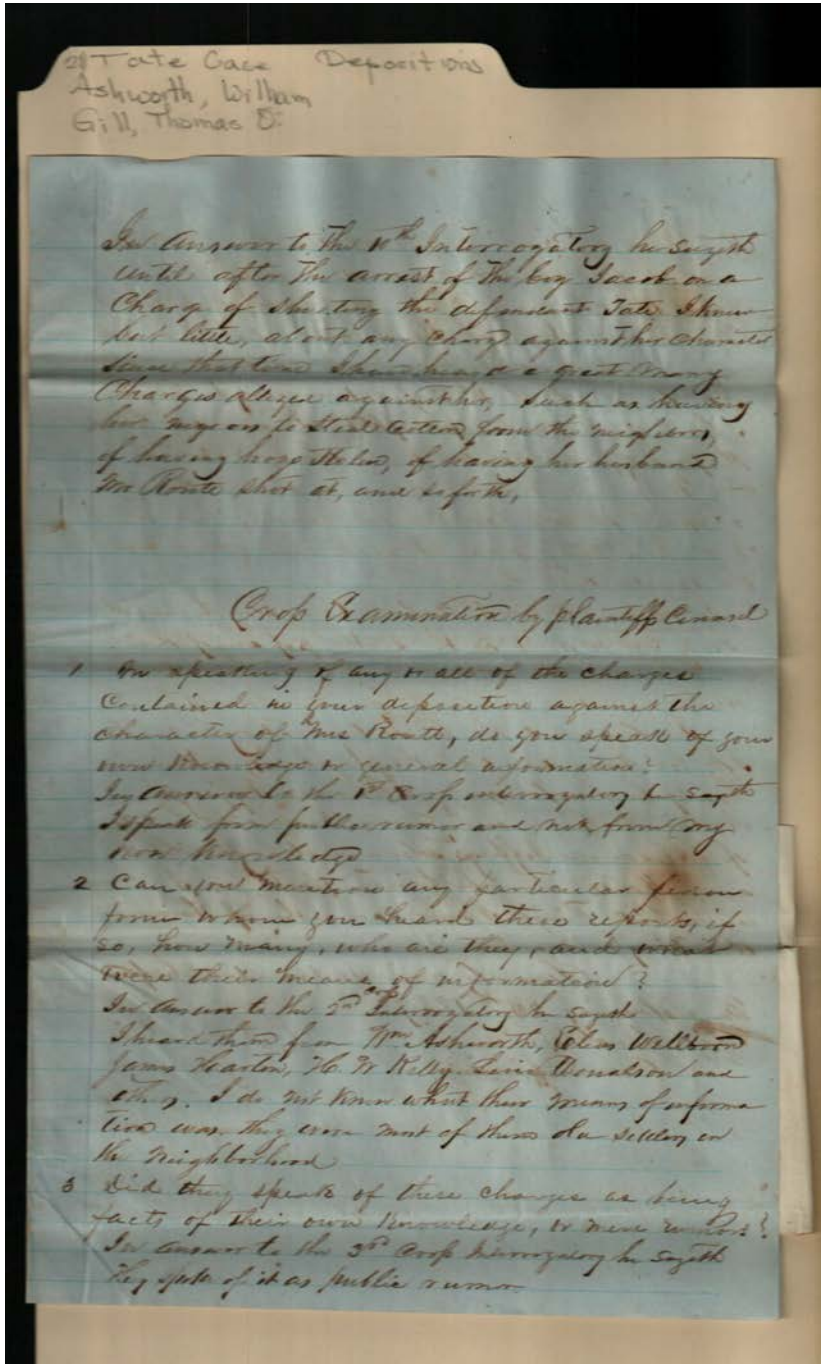 21 Tate Case Depositions
Ashworth, William
Gill, Thomas D.
In Answer to the 10th Interrogatory he sayeth
until after the arrest of the boy Jacob on a
Charge of shooting the defendant Tate I knew
but little, about any charge against her character
since that time I have heard a great many
Charges alleged against her, such as having
her negroes to steal cotton from the neighbors,
of having hogs stolen, of having her husband
Mr Routt shot at, and so forth,
Crop Examination by plaintiffs Counsel
1 In speaking of any or all of the charges
contained in your deposition against the
character of Mrs Routt, do you speak of your
own knowledge or general information?
In Answer to the 1st Crop interrogatory he sayeth
I speak from public rumor and not from my
own knowledge
2 Can you mention any particular person
from whom you heard these reports, if
so, how many, who are they, and what
were their means of information?
In answer to the 2nd Crop Interrogatory he sayeth
I heard them from Wm Ashworth, Elias Wellborn
James Hearton, H. W Kelly Levi Donalson and
others. I do not know what their means of informa
tion was, they were most of them old settlers in
the neighborhood
3 Did they speak of these charges as being
facts of their own knowledge, or mere rumors?
In answer to the 3rd Crop Interrogatory he sayeth
They spoke of it as public rumor